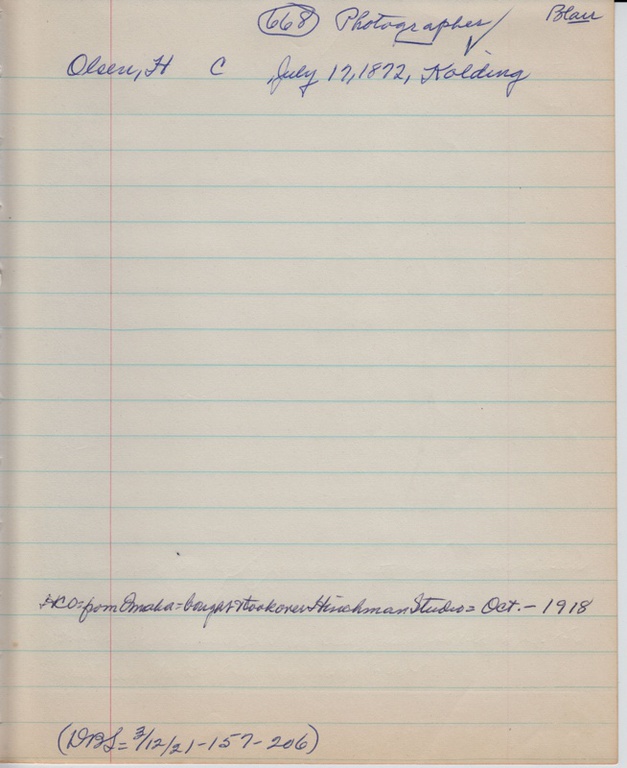 (668) Photographer Blair
Olsen, H C July 17, 1872, Kolding
HCO = from Omaha = bought & took over Hinchman Studio = Oct. - 1918
(DBS = 3/12/21 - 157 - 206)